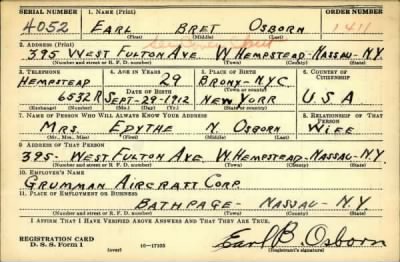 SERIAL NUMBER 1. NAME (Print) ORDER NUMBER
4052 EARL BRET OSBORN 1411
2. ADDRESS (Print)
395 WEST FULTON AVE. W. HEMPSTEAD-NASSAU-N.Y.
(Number and street or R. F. D. number) (Town) (County) (State)
3. TELEPHONE 4. AGE IN YEARS 5. PLACE OF BIRTH 6. COUNTRY OF CITIZENSHIP
HEMPSTEAD 29 BRONX-NYC
DATE OF BIRTH
6532R SEPT-29-1912 NEW YORK USA
(Exchange) (Number) (Mo.) (Day) (Yr.) (State or country)
7. NAME OF PERSON WHO WILL ALWAYS KNOW YOUR ADDRESS 8. RELATIONSHIP OF THAT PERSON
MRS. EDYTHE N. OSBORN WIFE
9. ADDRESS OF THAT PERSON
395-WEST FULTON AVE W. HEMPSTEAD-NASSAU-N.Y.
(Number and street or R. F. D. number) (Town) (County) (State)
10. EMPLOYER'S NAME
GRUMMAN AIRCRAFT CORP.
11. PLACE OF EMPLOYMENT OR BUSINESS
BATHPAGE- NASSAU-N.Y.
(Number and street or R. F. D. number) (Town) (County) (State)
I AFFIRM THAT I HAVE VERIFIED ABOVE ANSWERS AND THAT THEY ARE TRUE.
REGISTRATION CARD
D. S. S. Form 1 (over) 16-17105 Earl B. Osborn